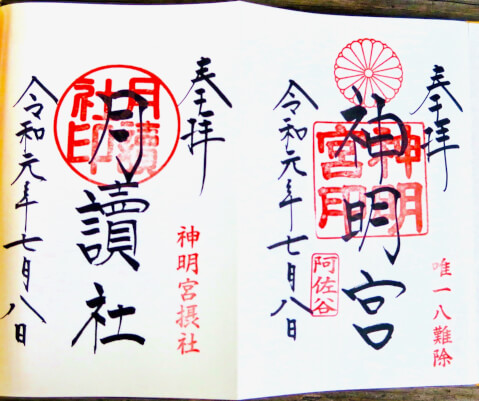 奉拝
神明宮
神明宮印
阿佐谷
唯一八難除
令和元年七月八日
奉拝
月讀社
月讀社印
神明宮摂社
令和元年七月八日